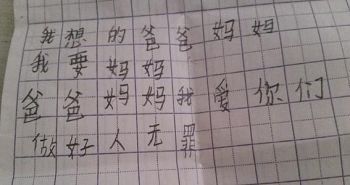 我想的爸爸妈妈
我要妈妈
爸爸妈妈我爱你们
做好人无罪